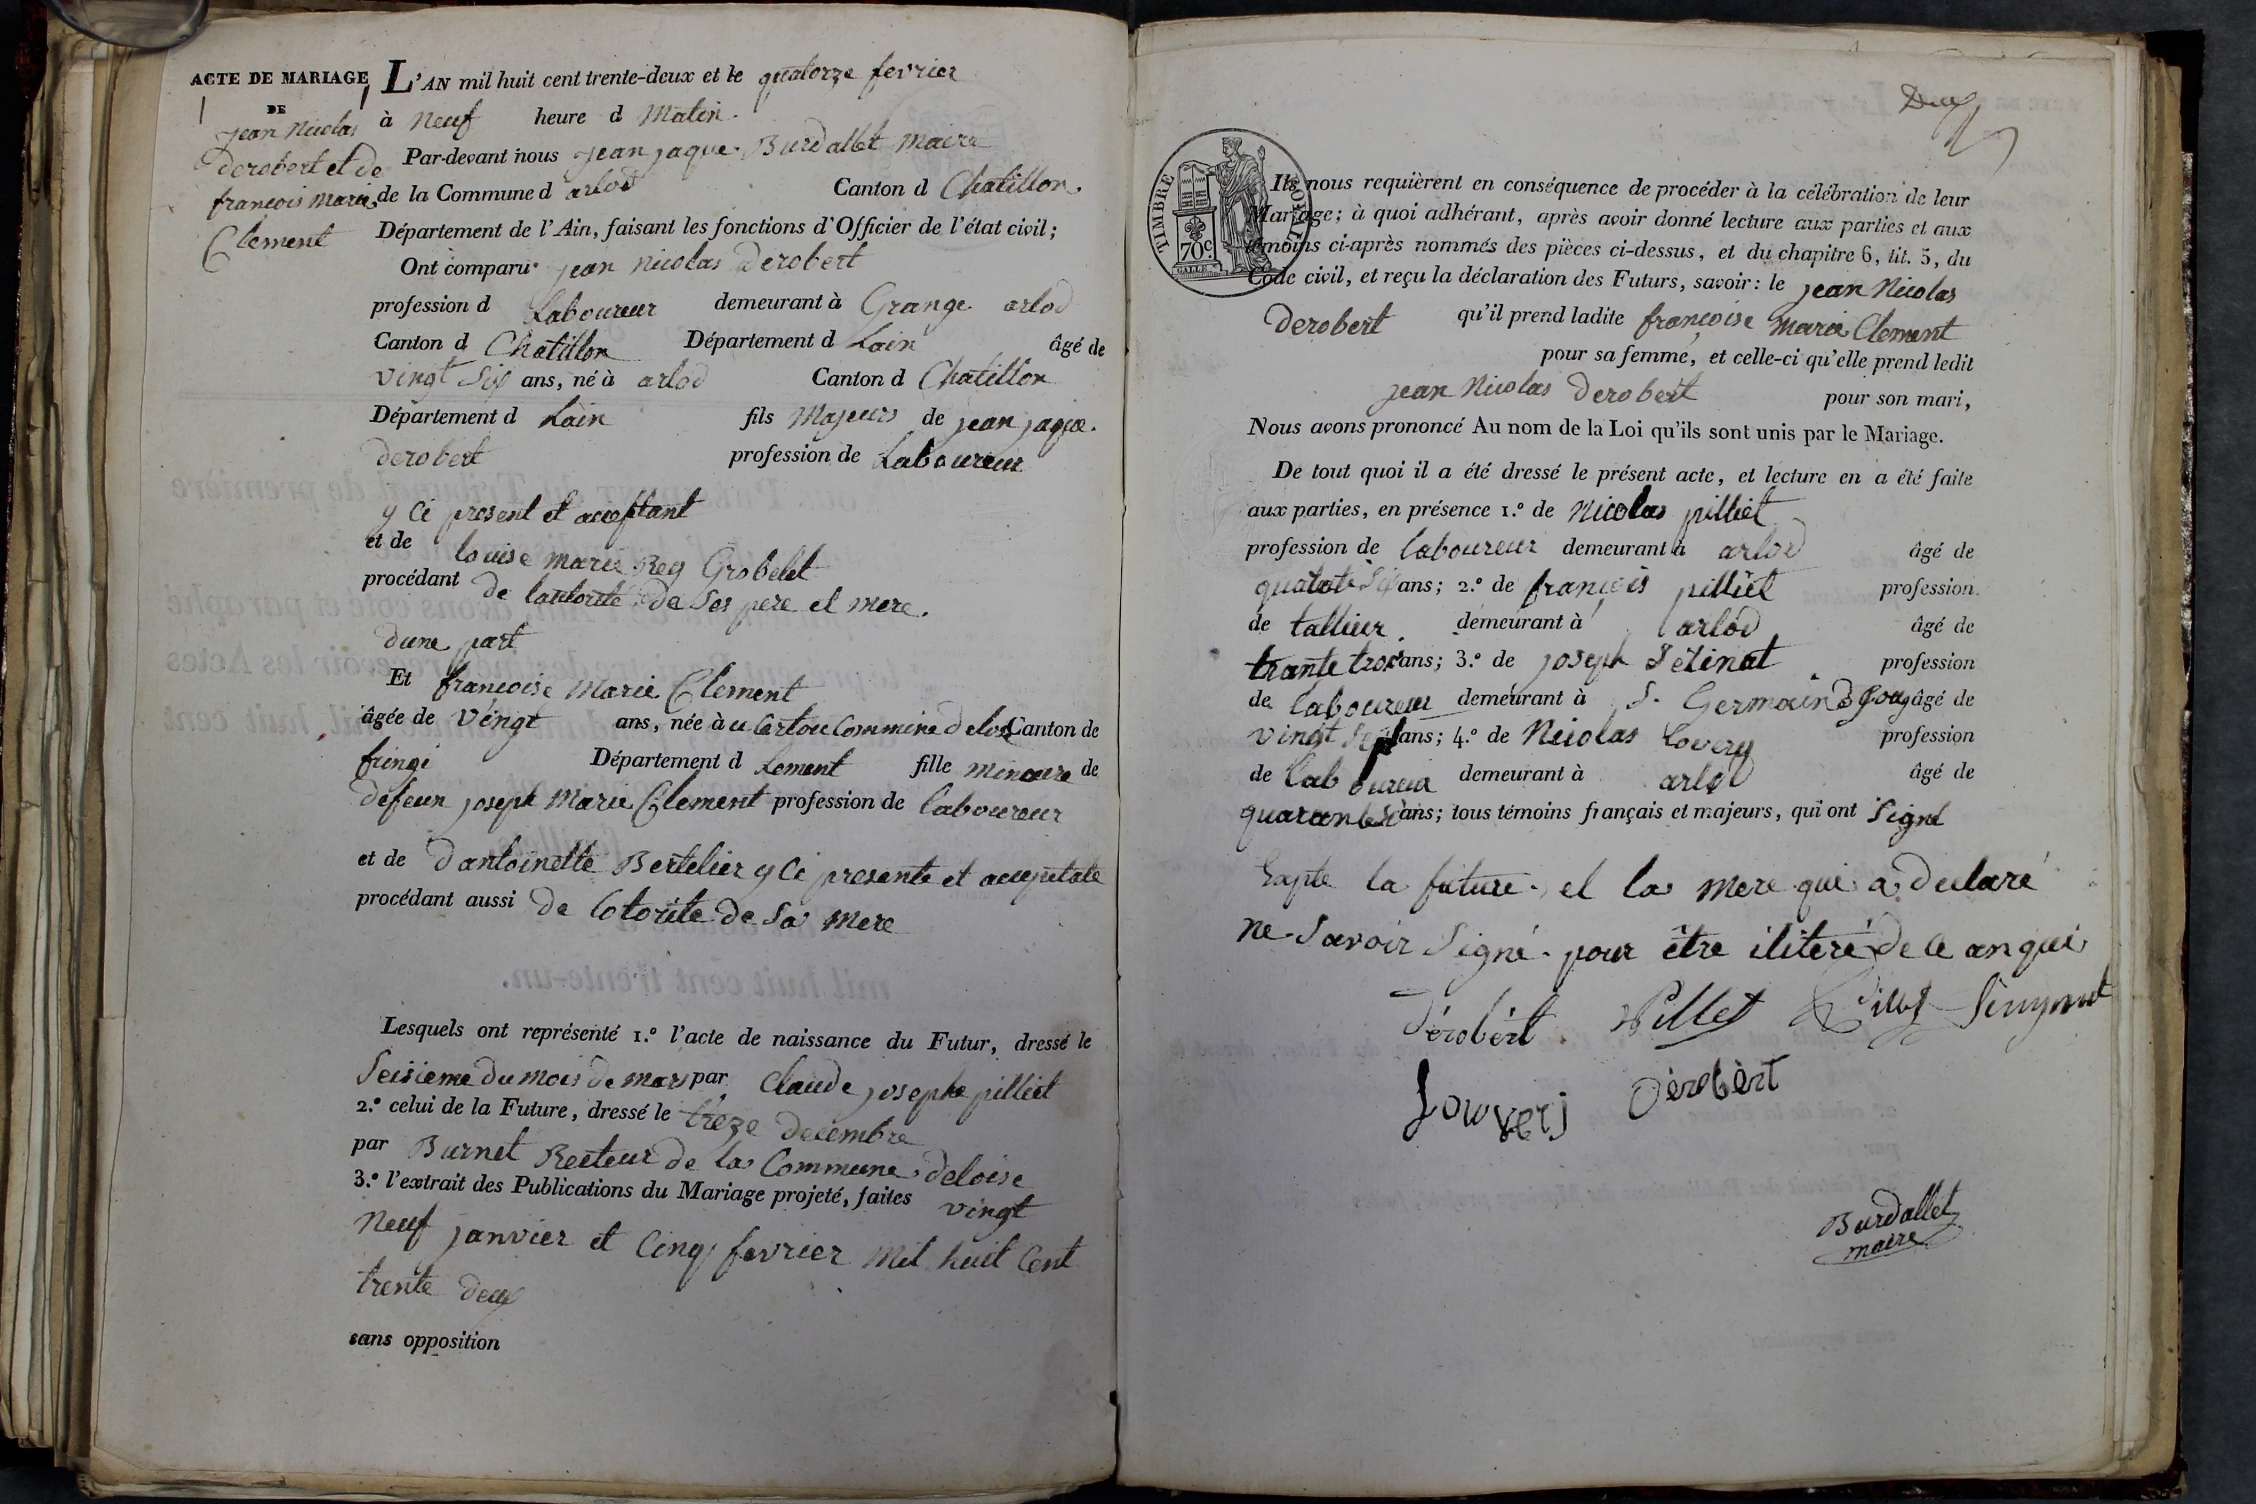 ACTE DE MARIAGE
DE
jean Nicolas
derobert et de
francois Marie
Clement
L'AN mil huit cent trente-deux et le quatorze fevrier
à neuf heure d Matin.
Par-devant nous jean jaque Burdallet Maire
de la Commune d arlod Canton d Chatillon
Département de l'Ain, faisant les fonctions d'Officier de l'état civil;
Ont comparu jean nicolas derobert
profession d Laboureur demeurant à Grange arlod
Canton d Chatillon Département d Lain âgé de
vingt Six ans, né à arlod Canton d Chatillon
Département d Lain fils Majeurs de jean jaque.
derobert profession de Laboureur
y Ci present et acceptant
et de louise marie Rey Grobelet
procédant de lautorité de Ses pere et mere.
dune part
Et francoise Marie Clement
âgée de vingt ans, née à Commine Canton de
fringi Département d Lement fille mineure de
defeun joseph Marie Clement profession de laboureur
et de dantoinette Bertelier y Ci presente et
procédant aussi de lotorite de Sa mere
Lesquels ont représenté 1.° l'acte de naissance du Futur, dressé le
Seisieme du mois de mars par Claude josephe pilliet
2.° celui de la Future, dressé le treze decembre
par Burnet Recteur de la Commune deloise
3.° l'extrait des Publications du Mariage projeté, faites vingt
Neuf janvier et Cinq fevrier Mil huit Cent
trente deux
sans opposition
Deux
TIMBRE ROYAL
70c.
Ils nous requièrent en conséquence de procéder à la célébration de leur
Mariage; à quoi adhérant, après avoir donné lecture aux parties et aux
témoins ci-après nommés des pièces ci-dessus, et du chapitre 6, tit. 5, du
Code civil, et reçu la déclaration des Futurs, savoir: le jean Nicolas
derobert qu'il prend ladite françoise Marie Clement
pour sa femme, et celle-ci qu'elle prend ledit
jean Nicolas derobert pour son mari,
Nous avons prononcé Au nom de la Loi qu'ils sont unis par le Mariage.
De tout quoi il a été dressé le présent acte, et lecture en a été faite
aux parties, en présence 1.° de Nicolas pilliet
profession de laboureur demeurant à arlod âgé de
Six ans; 2.° de françois pilliet profession
de tallieur demeurant à arlod âgé de
trante trois ans; 3.° de joseph profession
de laboureur demeurant à S. Germain d Joux âgé de
vingt Sept ans; 4.° de Nicolas Lovery profession
de laboureur demeurant à arlod âgé de
ans; tous témoins français et majeurs, qui ont Signé
Eapte la future et la mere qui a declaré
ne Savoir Signé pour être iliteré de ce an qui
dérobért Pillet
Louvery Dérobèrt
Burdallet
maire